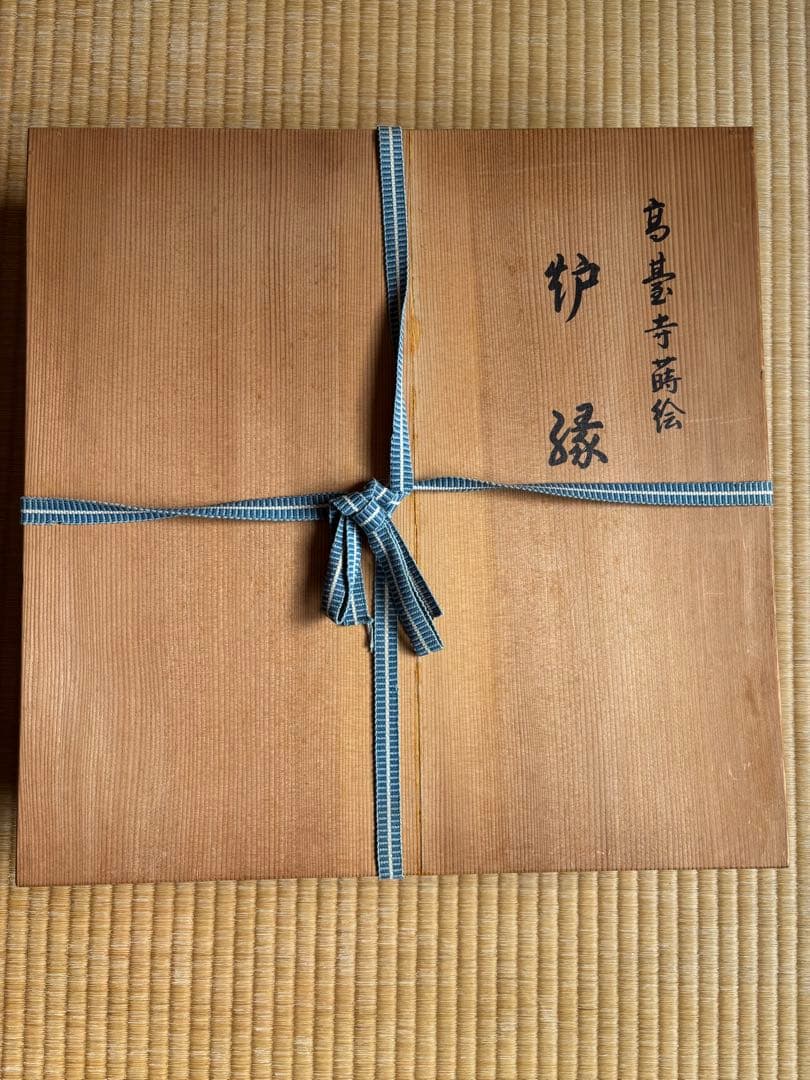 高臺寺蒔絵
炉縁